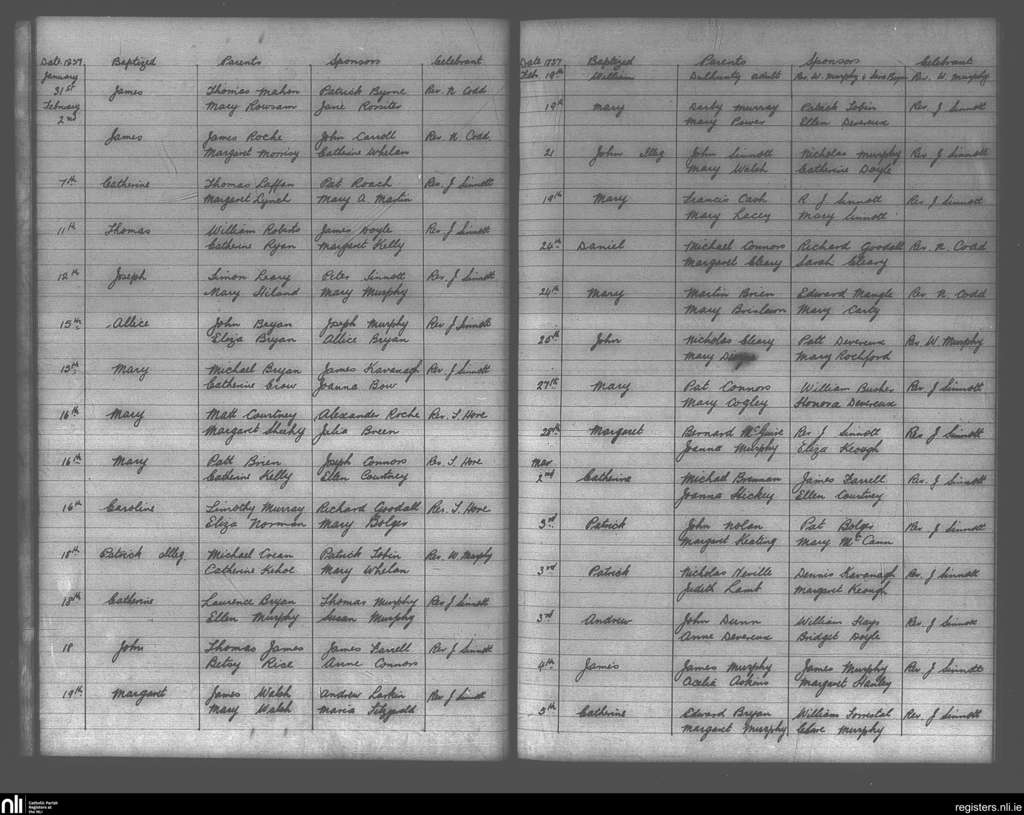 Date 1837 Baptized Parents Sponsors Celebrant
January
31st James Thomas Mahon Patrick Byrne Rev. N. Codd
February Mary Rowsam Jane Rossiter
2nd
James James Roche John Carroll Rev. N. Codd.
Margaret Morrisy Catherine Whelan
7th Catherine Thomas Laffan Pat Roach Rev. J Sinnott
Margaret Lynch Mary A. Martin
11th Thomas William Roberts James Doyle Rev J Sinnott
Catherine Ryan Margaret Kelly
12th Joseph Simon Leary Peter Sinnott Rev. J Sinnott
Mary Hiland Mary Murphy
15th Allice John Bryan Joseph Murphy Rev J Sinnott
Eliza Bryan Allice Bryan
15th Mary Michael Bryan James Kavanagh Rev J Sinnott
Catherine Crow Joanna Bow
16th Mary Matt Courtney Alexander Roche Rev. T. Hore
Margaret Sheehy Julia Breen
16th Mary Patt Brien Joseph Connors Rev. T. Hore
Catherine Kelly Ellen Courtney
16th Caroline Timothy Murray Richard Goodall Rev. T. Hore
Eliza Norman Mary Bolger
18th Patrick Illeg. Michael Crean Patrick Tobin Rev. W. Murphy
Catherine Kehoe Mary Whelan
18th Catherine Laurence Bryan Thomas Murphy Rev J Sinnott
Ellen Murphy Susan Murphy
18 John Thomas James James Farrell Rev J Sinnott
Betsy Rise Anne Connors
19th Margaret James Walsh Andrew Larkin Rev J Sinnott
Mary Walsh Maria Fitzgerald
Date 1837 Baptized Parents Sponsors Celebrant
Feb. 19th William adult Rev. W. Murphy & Bryan Rev. W. Murphy
19th Mary Darby Murray Patrick Tobin Rev. J Sinnott
Mary Power Ellen Devereux
21 John Illeg John Sinnott Nicholas Murphy Rev J Sinnott
Mary Walsh Catherine Doyle
19th Mary Francis Cash R J Sinnott Rev J Sinnott
Mary Lacey Mary Sinnott
24th Daniel Michael Connors Richard Goodall Rev. N. Codd
Margaret Cleary Sarah Cleary
24th Mary Martin Brien Edward Mangle Rev N. Codd
Mary Mary Carty
25th John Nicholas Cleary Patt Devereux Rev W. Murphy
Mary Mary Rochford
27th Mary Pat Connors William Busher Rev J Sinnott
Mary Cogley Honora Devereux
28th Margaret Bernard McGuire Rev J Sinnott Rev J Sinnott
Joanna Murphy Eliza Keough
Mar
2nd Catherine Michael Brennan James Farrell Rev. J Sinnott
Joanna Hickey Ellen Courtney
3rd Patrick John Nolan Pat Bolger Rev J Sinnott
Margaret Keating Mary McCann
3rd Patrick Nicholas Neville Dennis Kavanagh Rev. J Sinnott
Judith Lamb Margaret Keough
3rd Andrew John Dunn William Hays Rev. J Sinnott
Anne Devereux Bridget Doyle
4th James James Murphy James Murphy Rev J Sinnott
Askins Margaret Hanley
5th Catherine Edward Bryan William Forrestal Rev. J Sinnott
Margaret Murphy Murphy
nli
Catholic Parish
Registers at
the NLI
registers.nli.ie